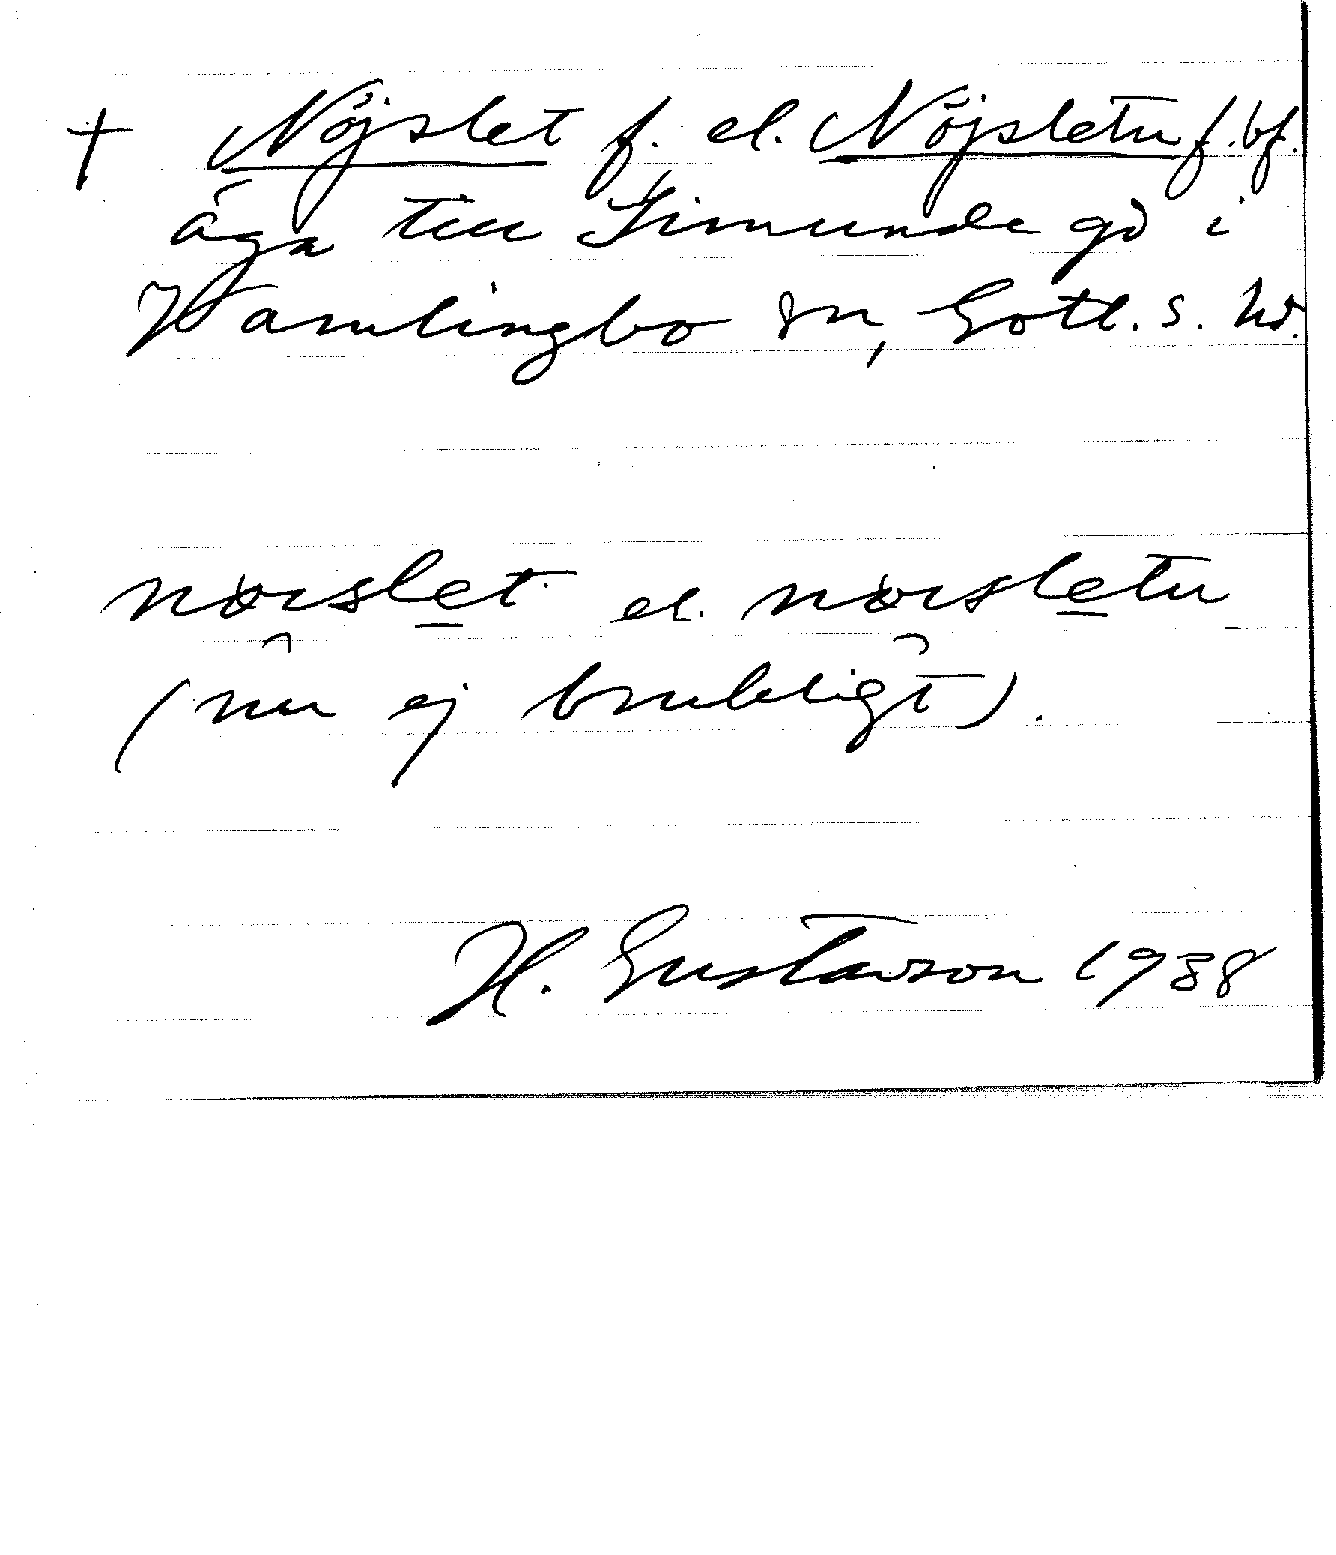 † Nöjslet f. el. Nöjsletu f. bf.
äga till Simunde gd i
Vamlingbo sn, Gotl. s. hd.
nøi̯slet el. nøi̯sletu
(nu ej brukligt).
H. Gustavson 1938